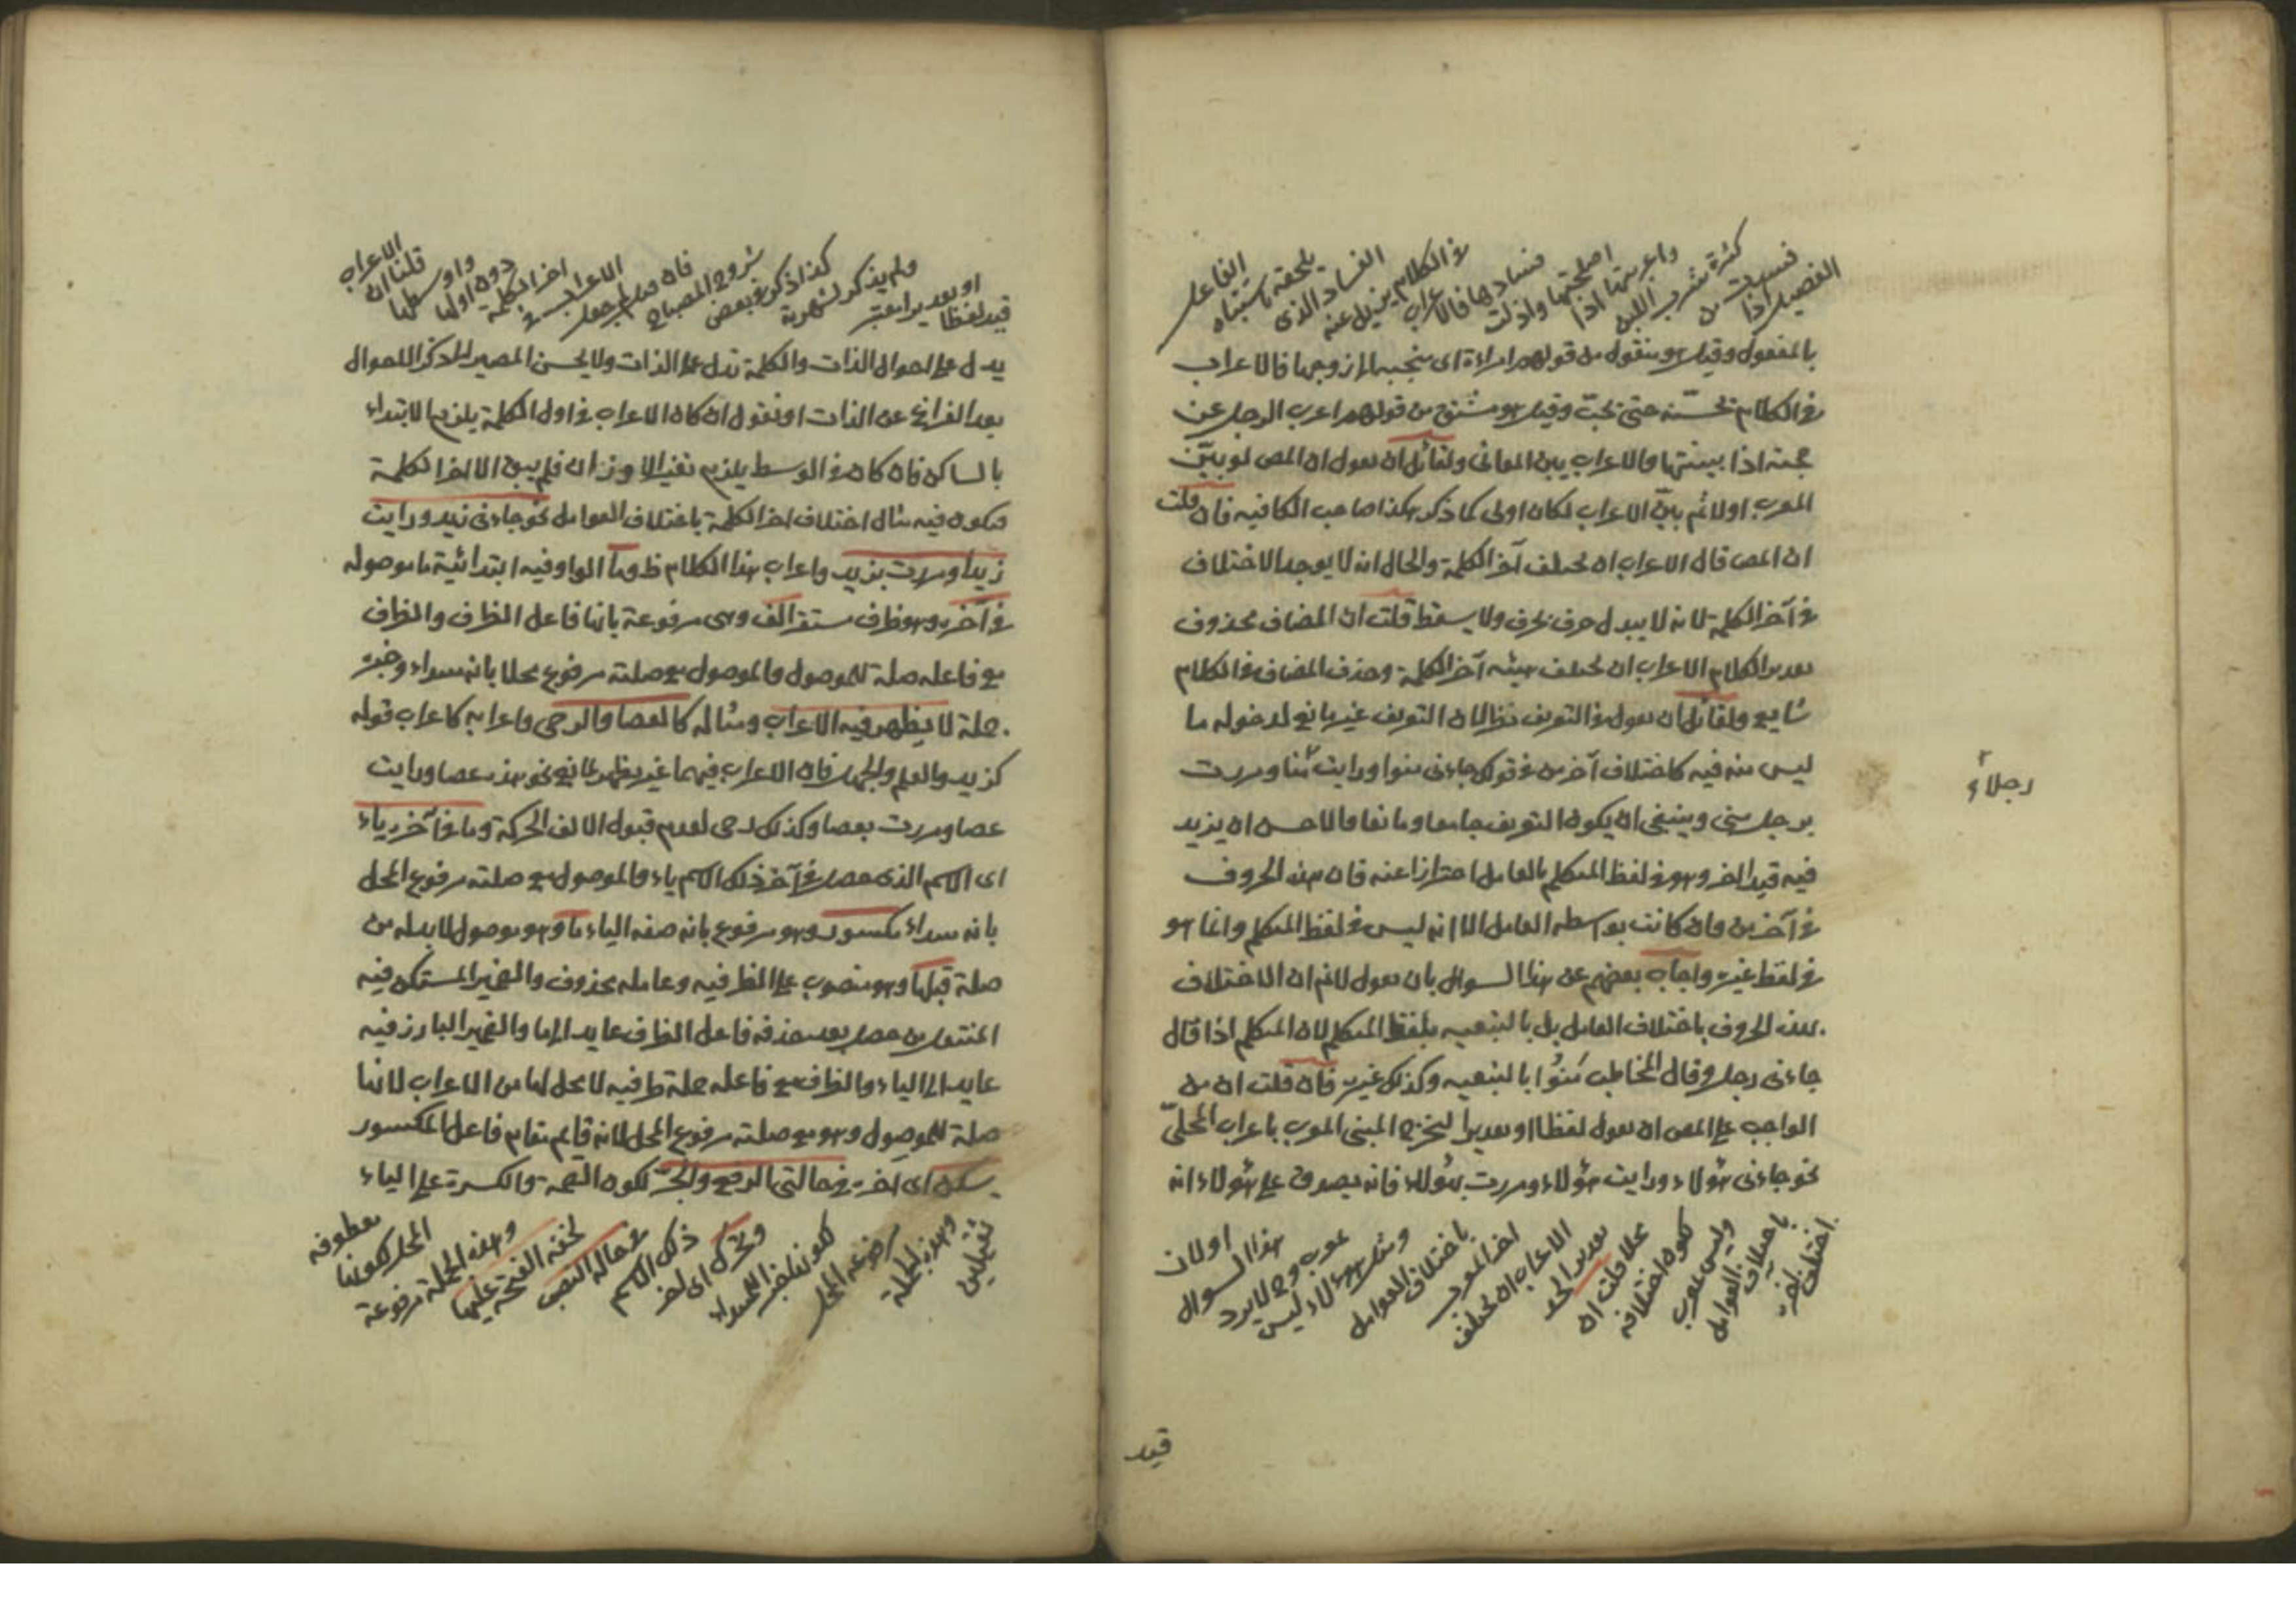 الفصيل اذا
فسدت من
كثرة شرب اللبن
واعربتها اذا
اصلحتها وازلت
فسادها فالاعراب
في الكلام يزيل عنه
الفساد الذي
يلحقه باشتباه
الفاعل
بالمفعول وقيل هو منقول من قولهم امراءة اى متحببة الى زوجها فالاعراب
في الكلام تحسنه حتى تحبّ وقيل هو مشتق من قولهم اعرب الرجل عن
حجته اذا بينتها والاعراب يبين المعانى ولقائل ان يقول ان المص لو بيّن
المعرب اولا ثم بيّن الاعراب لكان اولى كما ذكر هكذا صاحب الكافيه فان قلت
ان المص قال الاعراب ان يختلف آخر الكلمة والحال انه لا يوجد الاختلاف
في آخر الكلمة لانه لا يبدل حرف بحرف ولا يسقط قلت ان المضاف محذوف
تقدير الكلام الاعراب ان يختلف هيئه آخر الكلمة وحذف المضاف في الكلام
شايع ولقائل ان يقول في التعريف نظر لان التعريف غير مانع لدخوله ما
ليس منه فيه كاختلاف آخر من في قولك جاءنى منوا ورايت منا ومررت
رجلا و
برجل منى وينبغى ان يكون التعريف جامعا ومانعا فالاحسن ان يزيد
فيه قيد اخر وهو في لفظ المتكلم بالعامل احترازا عنه فان هذه الحروف
في آخر من وان كانت بواسطه العامل الا انه ليس في لفظ المتكلم وانما هو
في لفظ غيره واجاب بعضهم عن هذا السوال بان يقول لانم ان الاختلاف
بهذه الحروف باختلاف العامل بل بالتبعيه بلفظ المتكلم لان المتكلم اذا قال
جاءنى رجل وقال المخاطب مَنُوْا بالتبعيه وكذلك غيره فان قلت ان من
الواجب على المص ان يقول لفظا او تقديرا ليخرج المبنى المعرب باعراب المحلىّ
نحو جاءنى هؤلاء ورايت هؤلاء ومررت بهؤلاء فانه يصدق على هؤلاء انه
اختلف اخره
باختلاف العوامل
وليس بمعرب
لكون اختلافه
محلا قلت ان
تقدير الحد
الاعراب ان يختلف
اخر المعرب
باختلاف العوامل
ومثل هؤلاء ليس
بمعرب وح لا يرد
هذا السوال
اولان
قيد
قيد لفظا
او تقديرا معتبر
ولم يذكر لشهرته
كذا ذكر في بعض
شروح المصباح
فان قيل لم جعل
الاعراب في
اخر الكلمة
دون اولها
واوسطها
قلنا ان
الاعراب
يدل على احوال الذات والكلمة تدل على الذات ولا يحسن المصير الى ذكر الاحوال
بعد الفراغ عن الذات او نقول ان كان الاعراب في اول الكلمة يلزم الابتداء
بالساكن فان كان في الوسط يلزم تغير الاوزان فلم يبق الا اخر الكلمة
فيكون فيه مثال اختلاف اخر الكلمة باختلاف العوامل نحو جاءنى زيد ورايت
زيدا ومررت بزيد واعراب هذا الكلام ظ وما الواو فيه ابتدائية ما موصوله
في آخره وهو ظرف مستقر الف وهى مرفوعة بانها فاعل الظرف والظرف
مع فاعله صلة الموصول والموصول مع صلته مرفوع محلا بانه مبتداء وخبره
جملة لا يظهر فيه الاعراب ومثاله كالعصا والرحى واعرابه كاعراب قوله
كزيد والعلم والجهل فان الاعراب فيهما غير يظهر لمانع نحو هذه عصا ورايت
عصا ومررت بعصا وكذلك رحى لعدم قبول الالف الحركة وما في آخره ياء
اى الاسم الذى حصل في آخر ذلك الاسم ياء والموصول مع صلته مرفوع المحل
بانه مبتداء مكسور وهو مرفوع بانه صفه الياء ما وهو موصول لا بد له من
صلة قبلها وهو منصوب على الظرفيه وعامله محذوف والضمير المستكن فيه
المنتقل من حصل بعد حذفه فاعل الظرف عايد الى ما والضمير البارز فيه
عايد الى الياء والظرف مع فاعله جملة ظرفيه لا محل لها من الاعراب لانها
صلة الموصول وهو مع صلته مرفوع المحل لانه قايم مقام فاعل المكسور
يسكن اى آخره في حالتى الرفع والجرّ لكون الضمة والكسرة على الياء
ثقيلين
وهذه الجملة
مرفوعة المحل
لكونها خبر المبتداء
ويحرك اى اخر
ذلك الاسم
في حالة النصب
لخفة الفتحة عليها
وهذه الجملة مرفوعة
المحل لكونها
معطوفه